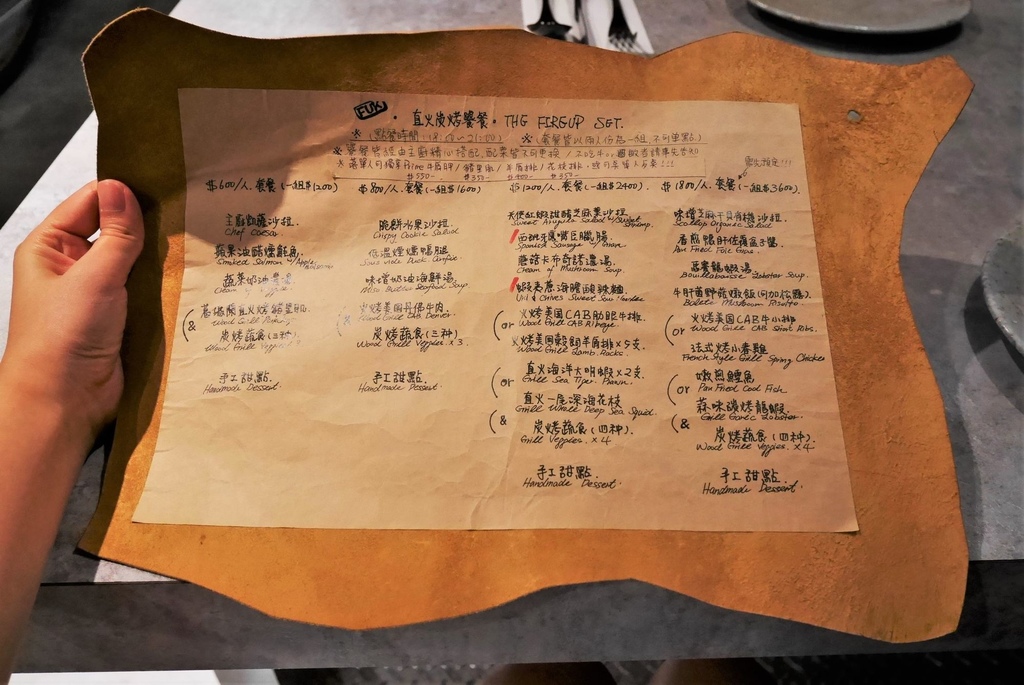 FUK · 直火炭烤饗餐 · THE FIREUP SET.
※ (點餐時間: 18:00~21:00) ※ (套餐皆以兩人份為一組 不可單點)
※ 套餐皆經由主廚精心搭配, 配菜皆不可更換 / 不吃牛,
$550- $350- $400- $350-
需先預定!!!
$600/人. 套餐 (一組$1200)
主廚凱薩沙拉
Chef Caesar
蘋果油醋燻鮭魚
Smoked Salmon w/ Apple
蔬菜奶油濃湯
&
炭烤蔬食 (三种)
Wood Grill Veggies x 3
手工甜點.
Handmade Dessert.
$800/人. 套餐 (一組$1600)
脆餅水果沙拉
Crispy Cookie Salad
低溫煙燻鴨腿
Sous vide Duck Confit
味噌奶油海鮮湯
Miso Butter Seafood Soup
火烤美国丹佛牛肉
Wood Grill CAB Denver
炭烤蔬食 (三种)
Wood Grill Veggies x 3
手工甜點.
Handmade Dessert.
$1200/人. 套餐 (一組$2400)
天使紅蝦甜醋芝麻葉沙拉
Sweet Arugula Salad w/ Sweet Shrimp.
西班牙風味臘腸
Spanish Sausage
蘑菇卡布奇諾濃湯
Cream of Mushroom Soup.
(or
火烤美国CAB肋眼牛排
Wood Grill CAB Ribeye
火烤美国穀飼羊肩排 x 5支
Wood Grill Lamb Racks.
(or
直火海洋大明蝦 x 2支
Grill Sea Tiger Prawn.
(&
直火一尾深海花枝
Grill Whole Deep Sea Squid
炭烤蔬食 (四种).
Grill Veggies. x 4
手工甜點
Handmade Dessert.
$1800/人. 套餐 (一組$3600)
味噌芝麻干貝有機沙拉
Scallops Organic Salad
香煎鴨肝佐蘋
Pan Fried Foie Gras
馬賽龍蝦湯
Bouillabaisse Lobster Soup.
牛肝菌野菇燉飯 (可加松露)
Bolete Mushroom Risotto
(or
火烤美国CAB牛小排
Wood Grill CAB Short Ribs.
法式烤小春雞
French Style Grill Spring Chicken
(or
嫩煎鱈魚
Pan Fried Cod Fish
(&
蒜味碳烤龍蝦
Grill Garlic Lobster
炭烤蔬食 (四种)
Wood Grill Veggies x 4
手工甜點
Handmade Dessert.